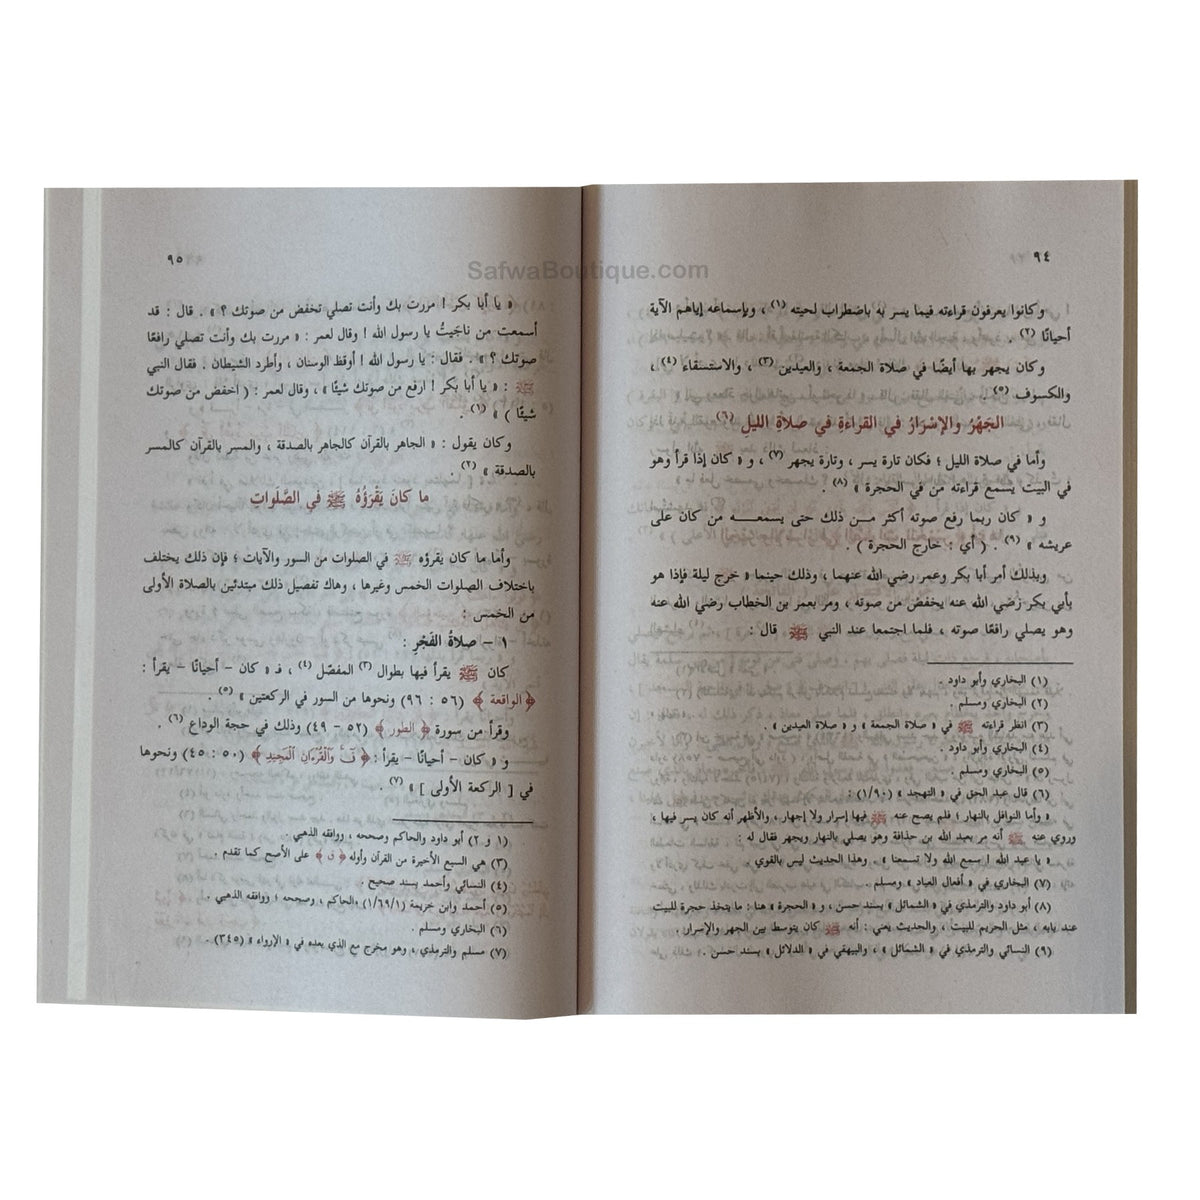 SafwaBoutique.com
٩٤
وكانوا يعرفون قراءته فيما يسر به باضطراب لحيته (١) ، وبإسماعه إياهم الآية
أحيانًا (٢) .
وكان يجهر بها أيضًا في صلاة الجمعة ، والعيدين (٣) ، والاستسقاء (٤) ،
والكسوف (٥) .
الجَهْرُ والإسْرَارُ في القراءةِ في صلاةِ الليل (٦)
وأما في صلاة الليل ؛ فكان تارة يسر ، وتارة يجهر (٧) ، و « كان إذا قرأ وهو
في البيت يسمع قراءته من في الحجرة » (٨) .
و « كان ربما رفع صوته أكثر مــن ذلك حتى يسمعــــه من كان على
عريشه » (٩) . ( أي : خارج الحجرة ) .
وبذلك أمر أبا بكر وعمر رضي الله عنهما ، وذلك حينما « خرج ليلة فإذا هو
بأبي بكر رضي الله عنه يصلي يخفض من صوته ، ومر بعمر بن الخطاب رضي الله عنه
وهو يصلي رافعًا صوته ، فلما اجتمعا عند النبي ﷺ قال :
(١) البخاري وأبو داود .
(٢) البخاري ومسلم .
(٣) انظر قراءته ﷺ في « صلاة الجمعة » و « صلاة العيدين » .
(٤) البخاري وأبو داود .
(٥) البخاري ومسلم .
(٦) قال عبد الحق في « التهجد » (١/٩٠) :
« وأما النوافل بالنهار ؛ فلم يصح عنه ﷺ فيها إسرار ولا إجهار ، والأظهر أنه كان يسر فيها ،
وروي عنه ﷺ أنه مر بعبد الله بن حذافة وهو يصلي بالنهار ويجهر فقال له :
« يا عبد الله ! سمع الله ولا تسمعنا » . وهذا الحديث ليس بالقوي .
(٧) البخاري في « أفعال العباد » ومسلم .
(٨) أبو داود والترمذي في « الشمائل » بسند حسن ، و « الحجرة » هنا : ما يتخذ حجرة للبيت
عند بابه ، مثل الحريم للبيت ، والحديث يعني : أنه ﷺ كان يتوسط بين الجهر والإسرار .
(٩) النسائي والترمذي في « الشمائل » ، والبيهقي في « الدلائل » بسند حسن .
٩٥
« يا أبا بكر ! مررت بك وأنت تصلي تخفض من صوتك ؟ » . قال : قد
أسمعت من ناجَيتُ يا رسول الله ! وقال لعمر : « مررت بك وأنت تصلي رافعًا
صوتك ؟ » . فقال : يا رسول الله ! أوقظ الوسنان ، وأطرد الشيطان . فقال النبي
ﷺ : « يا أبا بكر ! ارفع من صوتك شيئًا » ، وقال لعمر : ( اخفض من صوتك
شيئًا ) » (١) .
وكان يقول : « الجاهر بالقرآن كالجاهر بالصدقة ، والمسر بالقرآن كالمسر
بالصدقة » (٢) .
ما كانَ يَقْرَؤُهُ ﷺ في الصَّلَواتِ
وأمّا ما كان يقرؤه ﷺ في الصلوات من السور والآيات ؛ فإن ذلك يختلف
باختلاف الصلوات الخمس وغيرها ، وهاك تفصيل ذلك مبتدئين بالصلاة الأولى
من الخمس :
١ – صلاةُ الفَجْرِ :
كان ﷺ يقرأ فيها بطوال (٣) المفصّل (٤) ، فـ « كان – أحيانًا – يقرأ :
﴿ الواقعة ﴾ (٥٦ : ٩٦) ونحوها من السور في الركعتين » (٥) .
وقرأ من سورة ﴿ الطور ﴾ (٥٢ – ٤٩) وذلك في حجة الوداع (٦) .
و « كان – أحيانًا – يقرأ : ﴿ قٓ وَالْقُرْءَانِ الْمَجِيدِ ﴾ (٥٠ : ٤٥) ونحوها
في [ الركعة الأولى ] » (٧) .
(١ و ٢) أبو داود والحاكم وصححه ، ووافقه الذهبي .
(٣) هي السبع الأخيرة من القرآن وأوله ﴿ ق ﴾ على الأصح كما تقدم .
(٤) النسائي وأحمد بسند صحيح .
(٥) أحمد وابن خزيمة (١/٦٩/١) والحاكم ، وصححه ؛ ووافقه الذهبي .
(٦) البخاري ومسلم .
(٧) مسلم والترمذي ، وهو مخرج مع الذي بعده في « الإرواء » (٣٤٥) .